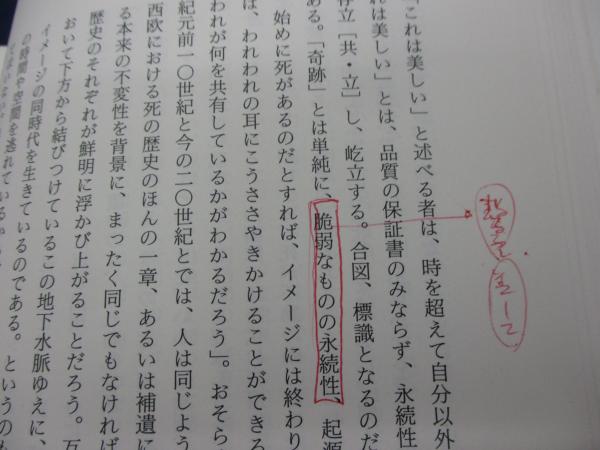 「これは美しい」と述べる者は、時を超えて自分以外
れは美しい」とは、品質の保証書のみならず、永続性
存立［共・立］し、屹立する。合図、標識となるのだ
ある。「奇跡」とは単純に、脆弱なものの永続性、起源
始めに死があるのだとすれば、イメージには終わり
は、われわれの耳にこうささやきかけることができる
われが何を共有しているかがわかるだろう」。おそら
紀元前一〇世紀と今の二〇世紀とでは、人は同じよう
西欧における死の歴史のほんの一章、あるいは補遺に
る本来の不変性を背景に、まったく同じでもなければ
歴史のそれぞれが鮮明に浮かび上がることだろう。万
おいて下方から結びつけているこの地下水脈ゆえに、
イメージの同時代を生きているのである。というのも
の時間や空間を逃れているから